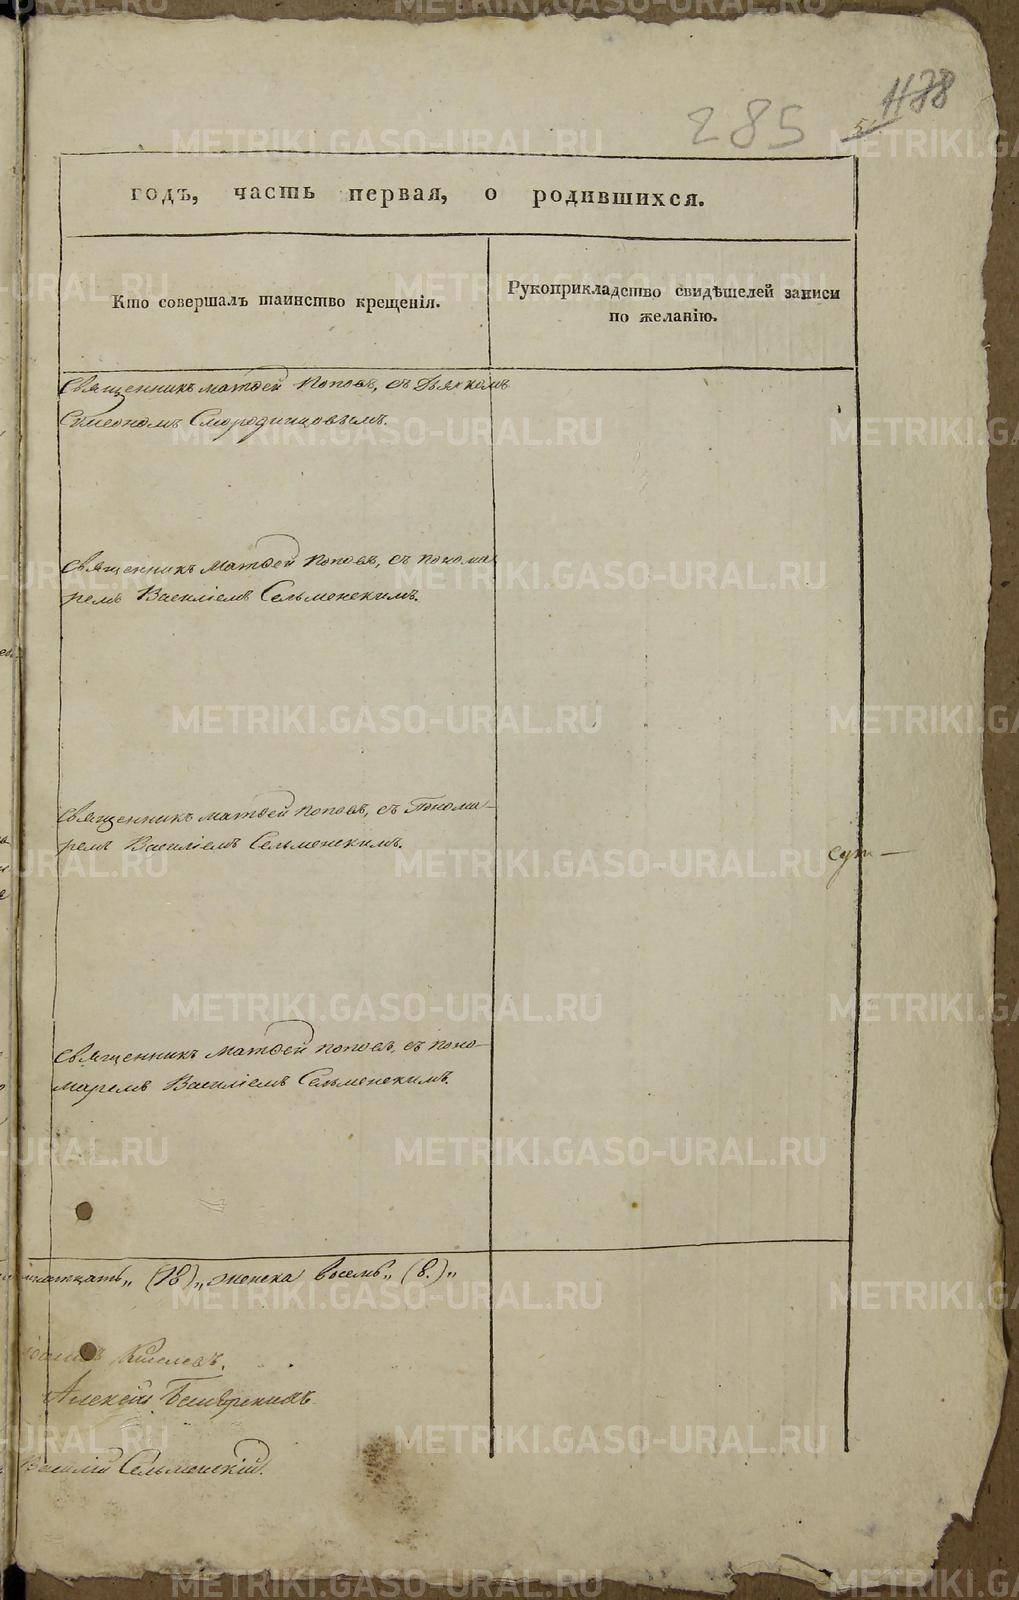 1178
285
годъ, часть первая, о родившихся.
Кто совершалъ таинство крещенія.
Рукоприкладство свидѣтелей записи
по желанію.
Священникъ Матѳей Поповъ, съ Дьякомъ
Симеономъ Смородинцовымъ.
Священникъ Матѳей Поповъ, съ понома
ремъ Василіемъ Сельменскимъ.
Священникъ Матѳей Поповъ, съ Понома-
ремъ Василіемъ Сельменскимъ.
сут—
Священникъ Матѳей Поповъ, съ поно-
маремъ Василіемъ Сельменскимъ.
(18) „ женска восемь „ (8.) „
Киселевъ.
Алексій
Василій Сельменскій.
METRIKI.GASO-URAL.RU